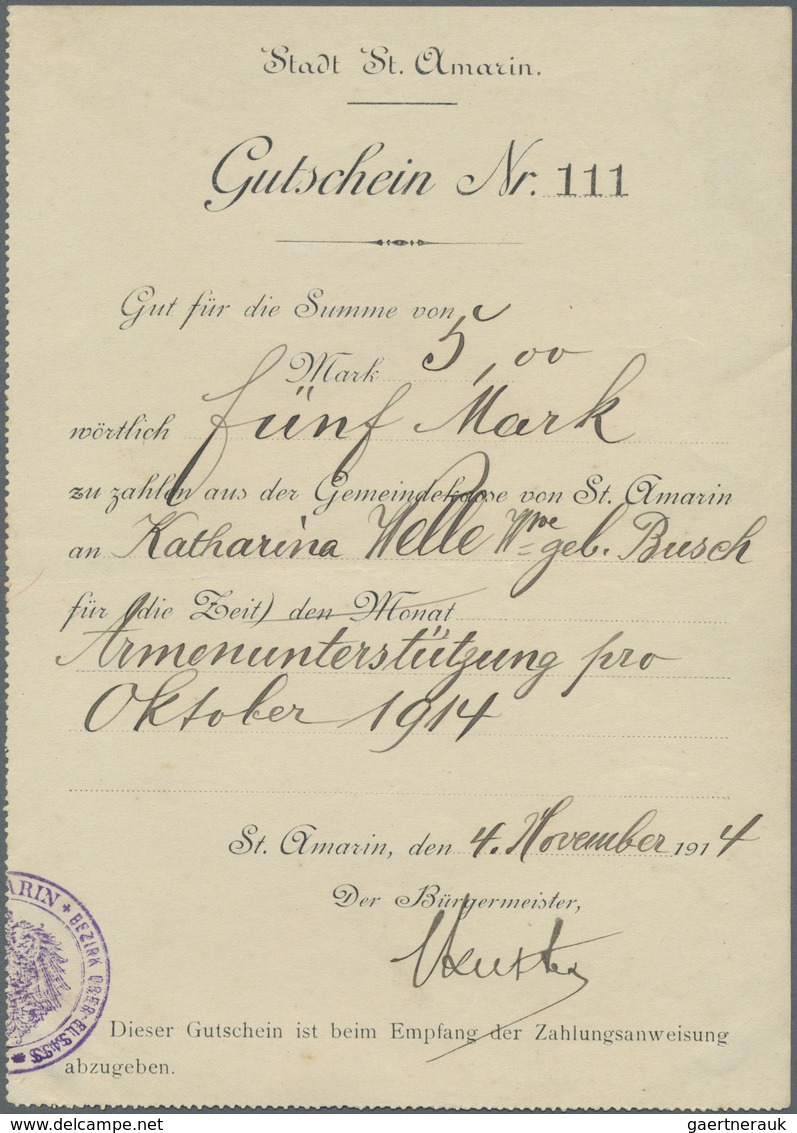 Stadt St. Amarin.
Gutschein Nr. 111
Gut für die Summe von
Mark 5,00
wörtlich fünf Mark
zu zahlen aus der Gemeindekasse von St. Amarin
an Katharina Welle Wwe geb. Busch
für (die Zeit) den Monat
Armenunterstützung pro
Oktober 1914
St. Amarin, den 4. November 1914
Der Bürgermeister,
ARIN + BEZIRK OBER-ELSASS *
Dieser Gutschein ist beim Empfang der Zahlungsanweisung
abzugeben.
delcampe.net
gaertnerauk